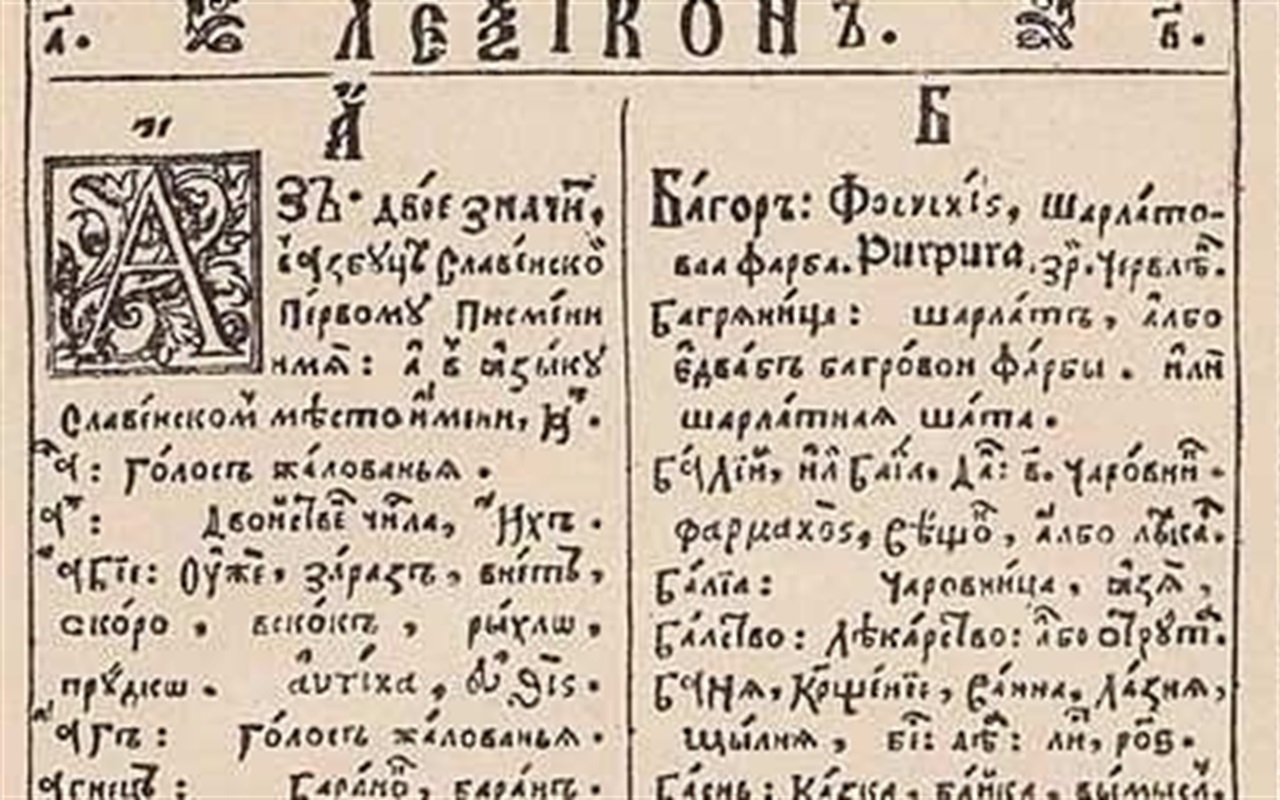 а҃. ЛЕѮІКОНЪ. в҃.
А
АЗЪ· двое значи́т,
в̾ азбуцѣ Славе́нско
Пе́рвому Писме́ни
имѧ: а в̾ ѧзы́ку
Славе́нском мѣстои́мени,
а: Го́лосъ жа́лованьѧ.
Двойстве числа, Ихъ.
абїе: Оу҆же, за́разъ, внетъ,
ско́ро, вско́къ, ры́хлѡ,
пру́дкѡ. αυτίκα, ευθις.
агъ: Го́лосъ жа́лованьѧ.
агнецъ: Бара́но, бара́нъ.
Б
Ба́горъ: Φοινικίς, Шарла́то-
ваа фарба. Purpura, зр. Червле.
Багрѧни́ца: шарла́тъ, а́лбо
едва́бъ багро́вои фа́рбы. или
шарла́тнаѧ ша́та.
Ба́лїй, ил Баїа, Да: в. Чаро́вни.
φαρμακος, а́лбо лѣка.
Ба́лїа: Чаровни́ца, ѧзѧ,
Ба́лство: Лѣка́рство: або отрут.
Банѧ, Крще́нїе, Ва́нна, Ла́знѧ,
ли, ров.
Ба́снь: Ка́зка, ба́йка, вы́мысл,